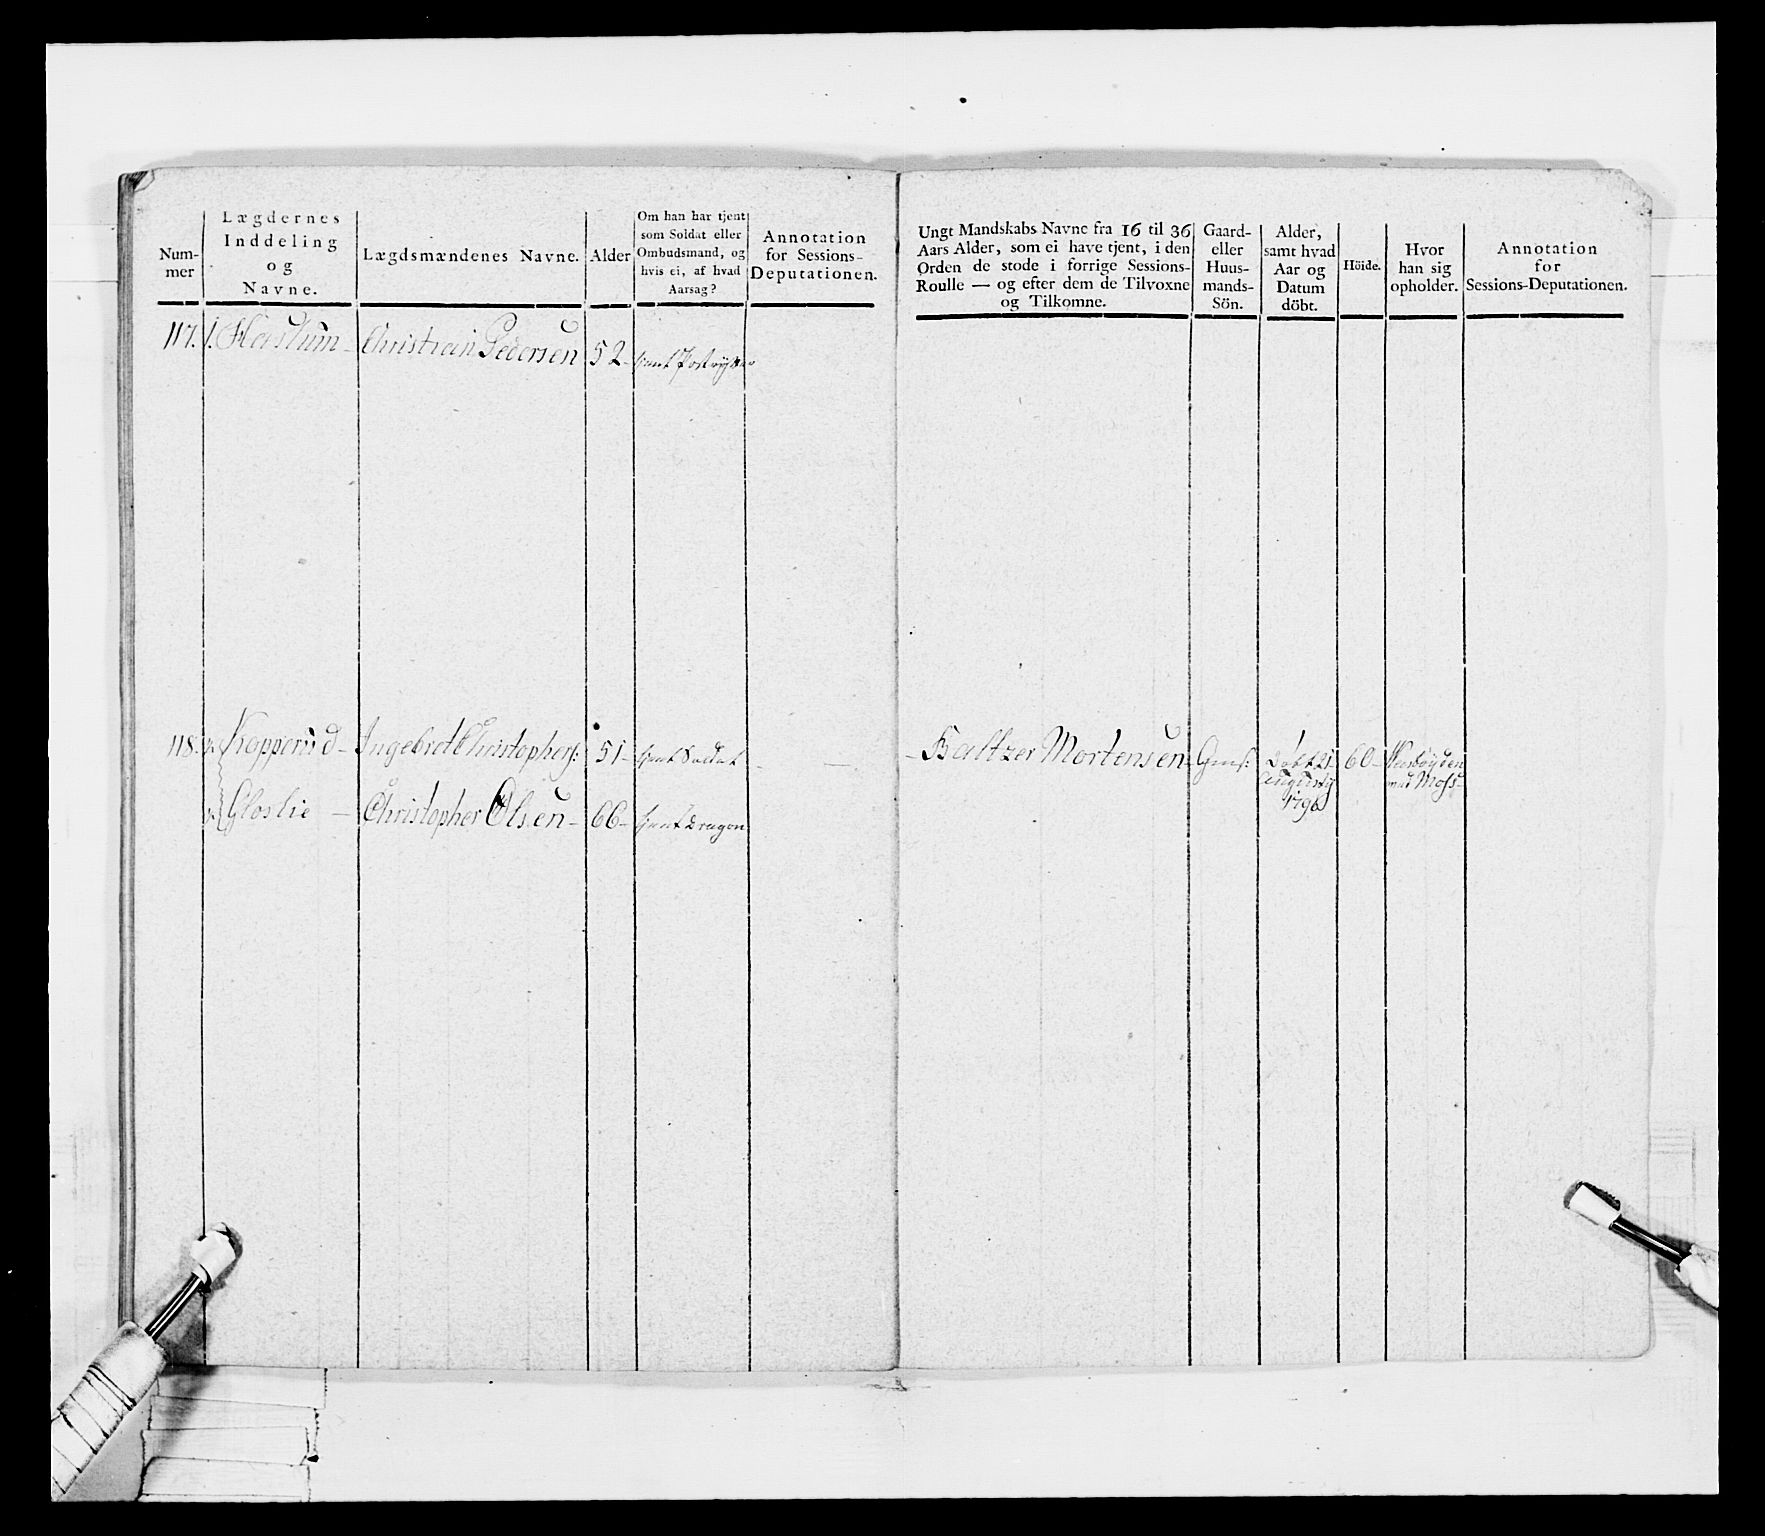 Num-
mer
Lægdernes
Inddeling
og
Navne.
Lægdsmændenes Navne.
Alder
Om han har tjent
som Soldat eller
Ombudsmand, og
hvis ei, af hvad
Aarsag?
Annotation
for Sessions-
Deputationen.
117. 1. Haslum - Christian Pedersen 52 -
118. Kopperud - Ingebret Christophers: 51 - tjent Soldat - —
Gloslie — Christopher Olsen - 66 - tjent Dragon
Ungt Mandskabs Navne fra 16 til 36
Aars Alder, som ei have tjent, i den
Orden de stode i forrige Sessions-
Roulle — og efter dem de Tilvoxne
og Tilkomne.
Gaard-
eller
Huus-
mands-
Sön.
Alder,
samt hvad
Aar og
Datum
döbt.
Höide.
Hvor
han sig
opholder.
Annotation
for
Sessions-Deputationen.
- Baltzer Mortensen - Gms: Döbt 21 60 -
Augusty
1796
ved Moss -